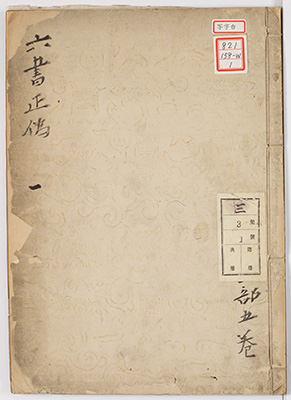 六書正偽
一
写字台
821
159-W
1
三
3
1
部五巻